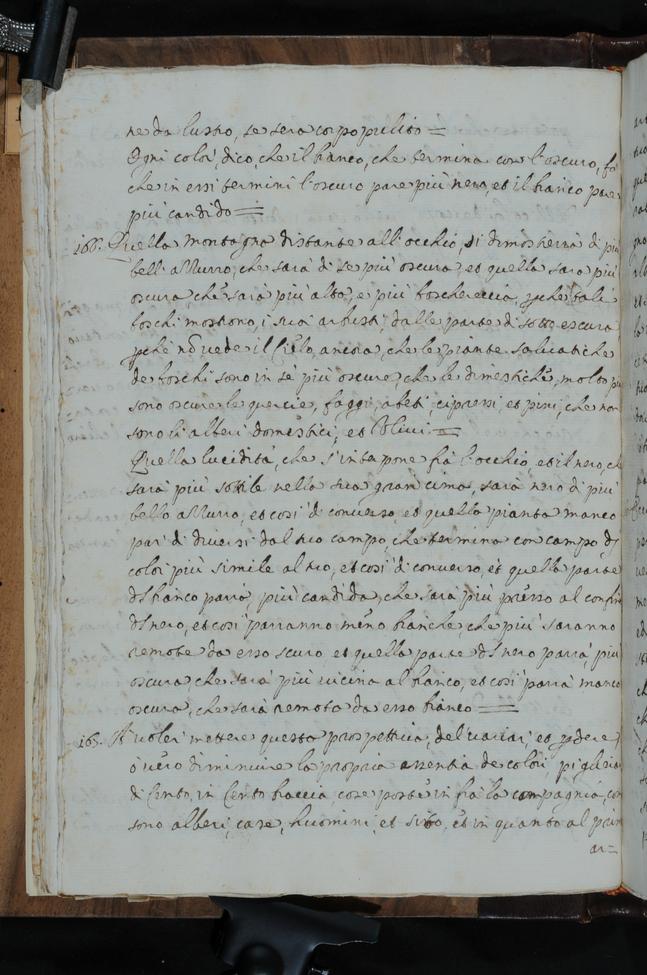 ne da lustro, se sera corpo pulito =
Ogni color, dico, che il bianco, che termina con l'oscuro, fà
che in essi termini l'oscuro pare più nero, et il bianco pare
più candido =
166. Quella montagna distante all'occhio, si dimosterrà di più
bell'azzurro, che sarà di se più oscura, et quella sarà più
oscura che sarà più alta, e più boschereccia, perche tali
boschi mostrono, i suoi arbusti, dalle parte di sotto oscura
perche nõ vede il Cielo, ancora, che le piante saluatiche
de boschi sono in sé più oscure, che le dimestiche, molto più
sono oscure le quercie, faggi, abeti, cipressi, et pini, che non
sono li alberi domestici, et Oliui =
Quella lucidità, che s'interpone frà l'occhio, et il nero, che
sarà più sottile nella sua gran cima, farà nero di più
bello azzurro, et così di conuerso et quella pianta manco
par di diuersi dal suo campo, che termina con campo, di
color più simile al suo, et così di conuerso, et quella parte
del bianco parrà, più candida, che sarà più presso al confin
del nero, et così parranno meno bianche, che più saranno
remote da esso scuro, et quella parte del nero parrà, più
oscura, che sarà più uicina al bianco, et così parrà manco
oscura, che sarà remota da esso bianco =
165. A uoler mettere questa prospettiua, del uariar, et perdere,
ò uero diminuire la propria essentia de colori, piglierai
di Cento, in Cento braccia, cose poste in frà la compagnia, come
sono alberi, case, huomini, et sito, et in quanto al prim
ar=